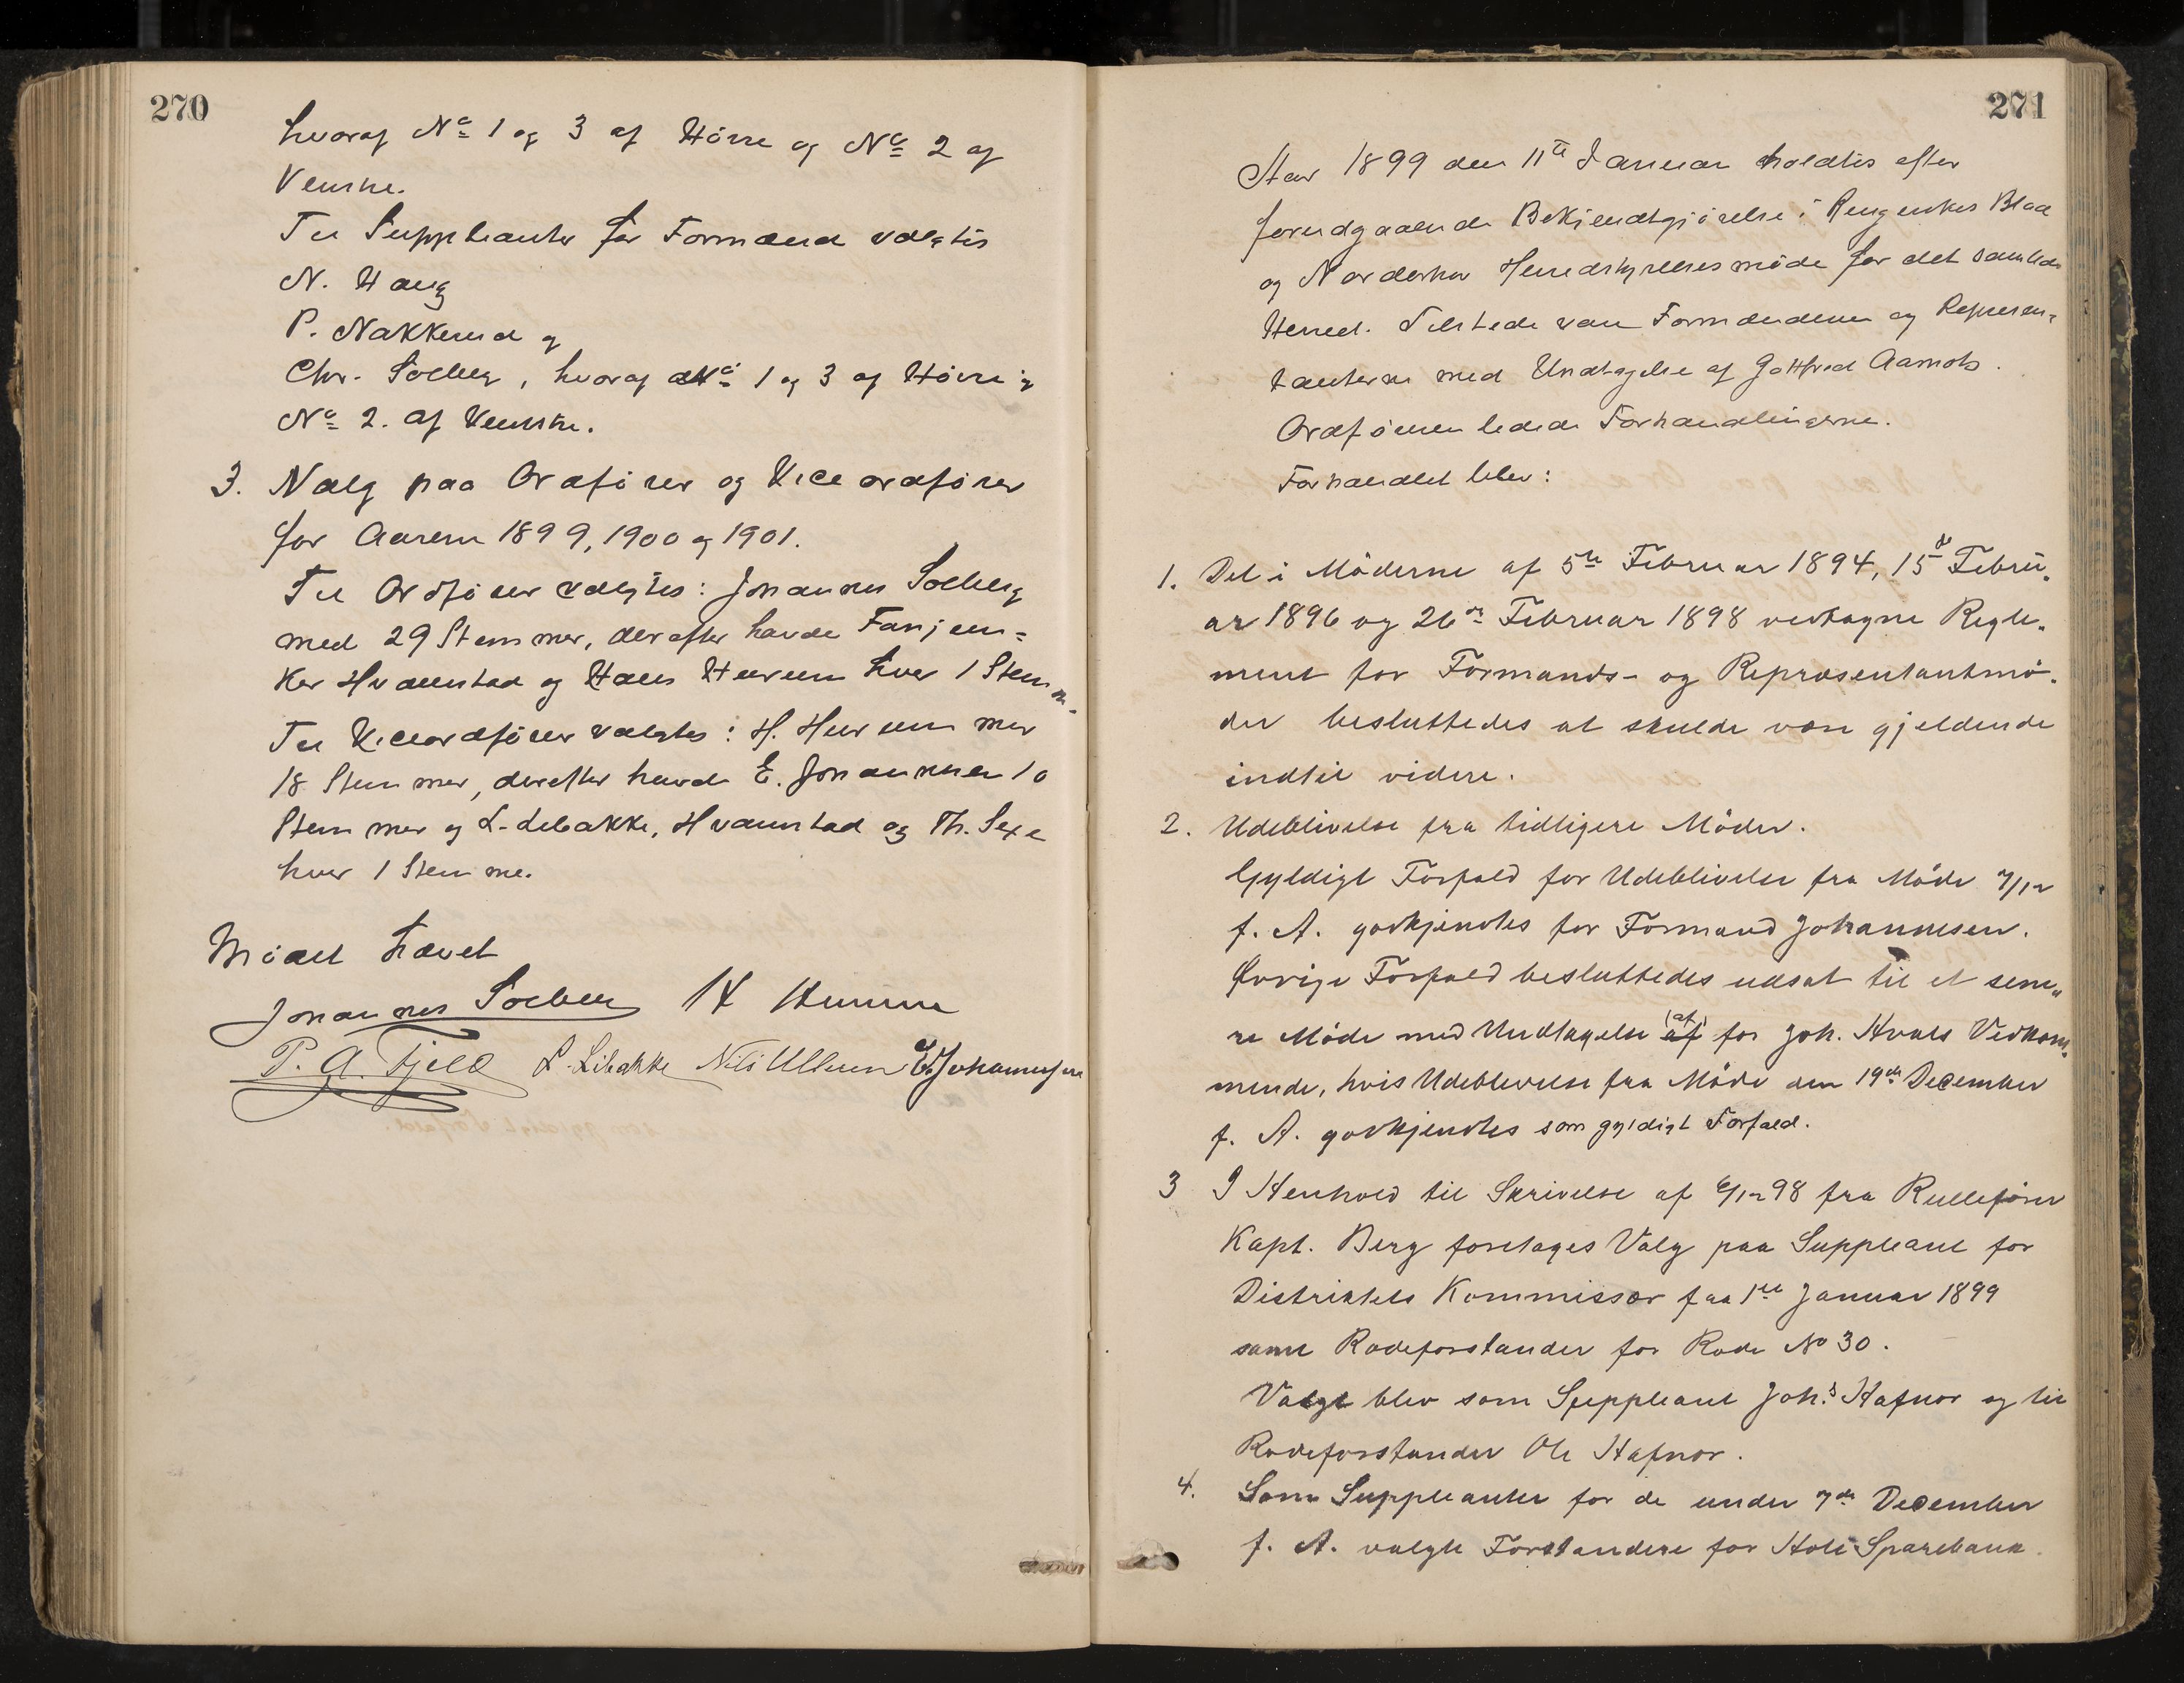 270
hvoraf No 1 og 3 af Höire og No 2 af
Venstre.
Til Suppleanter for Formænd valgtes
N. Haug
P. Nakkerud og
Chr. Solberg, hvoraf No 1 og 3 af Höire og
No 2. af Venstre.
3. Valg paa Ordförer og Viceordförer
for Aarene 1899, 1900 og 1901.
Til Ordförer valgtes: Johannes Solberg
med 29 Stemmer, derefter havde Fanejun=
ker Hvamstad og Hans Hurum hver 1 Stem
Til Viceordförer valgtes: H. Hurum med
18 Stemmer, derefter havde E. Johannesen 10
Stemmer og L. Libakke, Hvamstad og Th. Sexe
hver 1 Stemme.
Mödet hævet
Johannes Solberg H Hurum
P. A. Fjeld L. Libakke Nils Ullern E. Johannesen
271
Aar 1899 den 11te Januar holdtes efter
forudgaaende Bekjendtgjörelse i Ringerikes Blad
og Norderhov Herredstyrelsesmöde for det samlede
Herred. Tilstede var Formændene og Represen=
tanterne med Undtagelse af Gottfred Aamodt.
Ordföreren ledede Forhandlingerne.
Forhandlet blev:
1. Det i Möderne af 5te Februar 1894, 15de Febru=
ar 1896 og 26de Februar 1898 vedtagne Regle=
ment for Formands- og Repræsentantmö=
der besluttedes at skulde være gjeldende
indtil videre.
2. Udeblivelse fra tidligere Möder.
Gyldigt Forfald for Udeblivelse fra Möde 7/12
f. A. godkjendtes for Formand Johannesen.
Øvrige Forfald besluttedes udsat til et sene=
re Möde med Undtagelse af (af) for Joh. Hvals Vedkom=
mende, hvis Udeblivelse fra Möde den 19de December
f. A. godkjendtes som gyldigt Forfald.
3 I Henhold til Skrivelse af 6/12 98 fra Rulleförer
Kapt. Berg foretages Valg paa Suppleant for
Distriktets Kommissær fra 1ste Januar 1899
samt Rodeforstander for Rode No 30.
Valgt blev som Suppleant Johs Hafnor og til
Rodeforstander Ole Hafnor.
4. Som Suppleanter for de under 7de December
f. A. valgte Forstandere for Hole Sparebank